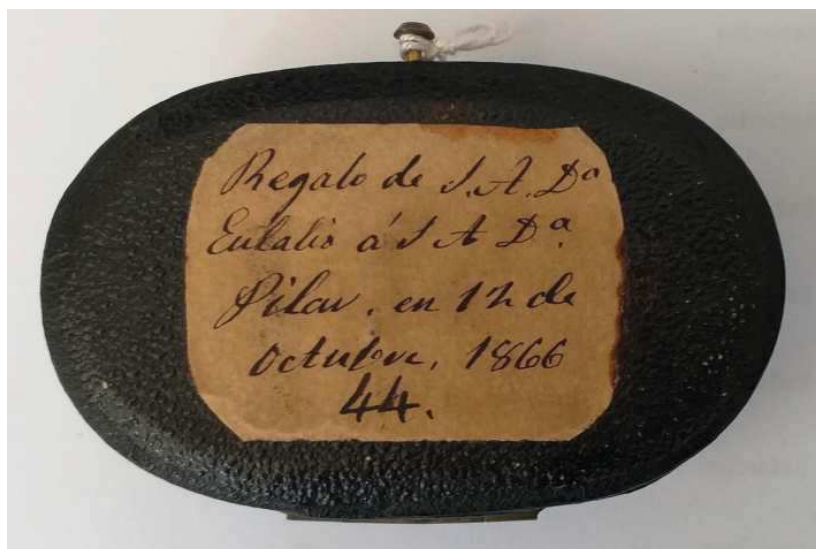 Regalo de S.A. Dª
Eulalia á S A Dª.
Pilar, en 12 de
Octubre, 1866
44.